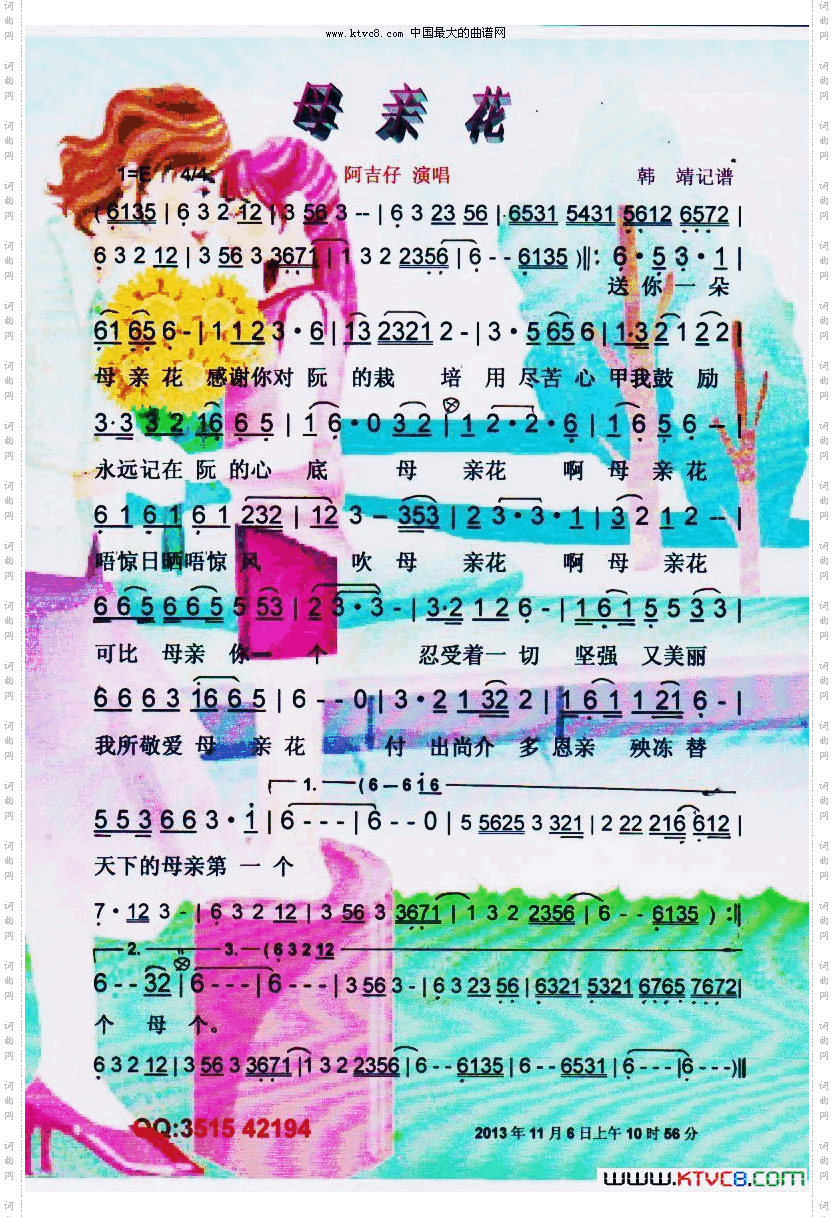 www.ktvc8.com 中国最大的曲谱网
母亲花
1=E 4/4
阿吉仔 演唱
韩 靖记谱
( 6135 | 6 3 2 12 | 3 56 3 -- | 6 3 23 56 | 6531 5431 5612 6572 |
6 3 2 12 | 3 56 3 3671 | 1 3 2 2356 | 6 - - 6135 )‖: 6 · 5 3 · 1 |
送 你 一 朵
61 65 6 - | 1 12 3 · 6 | 13 2321 2 - | 3 · 5 65 6 | 1·3 2 1 2 2 |
母 亲 花 感谢你对 阮 的栽 培 用 尽苦 心 甲我鼓 励
3·3 3 2 16 6 5 | 1 6 · 0 3 2 | 1 2 · 2 · 6 | 1 6 5 6 -- |
永远记在 阮 的心 底 母 亲花 啊 母 亲 花
6 1 6 1 6 1 232 | 12 3 -- 353 | 2 3 · 3 · 1 | 3 2 1 2 -- |
唔惊日晒唔惊 风 吹 母 亲花 啊 母 亲花
6 6 5 6 6 5 5 53 | 2 3 · 3 - | 3·2 1 2 6 - | 1 6 1 5 5 3 3 |
可比 母亲 你一 个 忍受着一 切 坚强 又美丽
6 6 6 3 16 6 5 | 6 - - 0 | 3 · 2 1 32 2 | 1 6 1 1 21 6 - |
我所敬爱 母 亲 花 付 出尚介 多 恩亲 殃冻 替
1. ( 6 — 6 i 6
5 5 3 6 6 3 · i | 6 - - - | 6 - - 0 | 5 5625 3 321 | 2 22 216 612 |
天下的母亲第 一 个
7 · 12 3 - | 6 3 2 12 | 3 56 3 3671 | 1 3 2 2356 | 6 - - 6135 ) :‖
2. 3. ( 6 3 2 12
6 - - 32 | 6 - - - | 6 - - - | 3 56 3 - | 6 3 23 56 | 6321 5321 6765 7672 |
个 母 个。
6 3 2 12 | 3 56 3 3671 | 1 3 2 2356 | 6 - - 6135 | 6 - - 6531 | 6 - - - | 6 - - - )‖
QQ:3515 42194
2013 年 11 月 6 日上午 10 时 56 分
www.KTVC8.com
词曲网